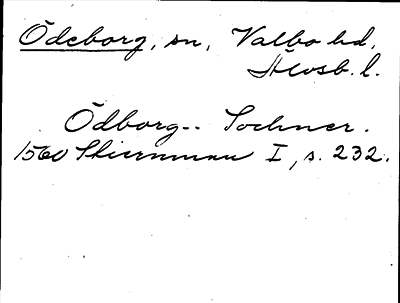 Ödeborg, sn, Valbo hd,
Älvsb. l.
Ödborg-- Sochner.
1560 Stiernman I, s. 232.